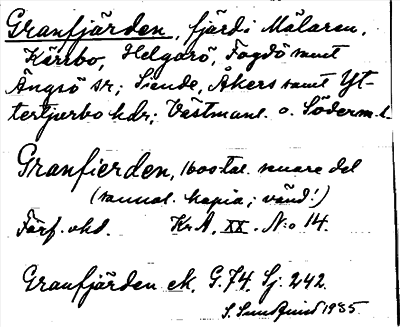 Granfjärden, fjärd i Mälaren,
Kärrbo, Helgarö, Fogdö samt
Ängsö sr; Siende, Åkers samt Yt-
tertjurbo hdr; Västmanl. o. Söderm. l.
Granfierden, 1600-tal. senare del
(samnat. kopia; vänd!)
Förf. okd. Kr A. XX. N:o 14.
Granfjärden ek. G. 74. Sj. 242.
S. Sundquist 1935